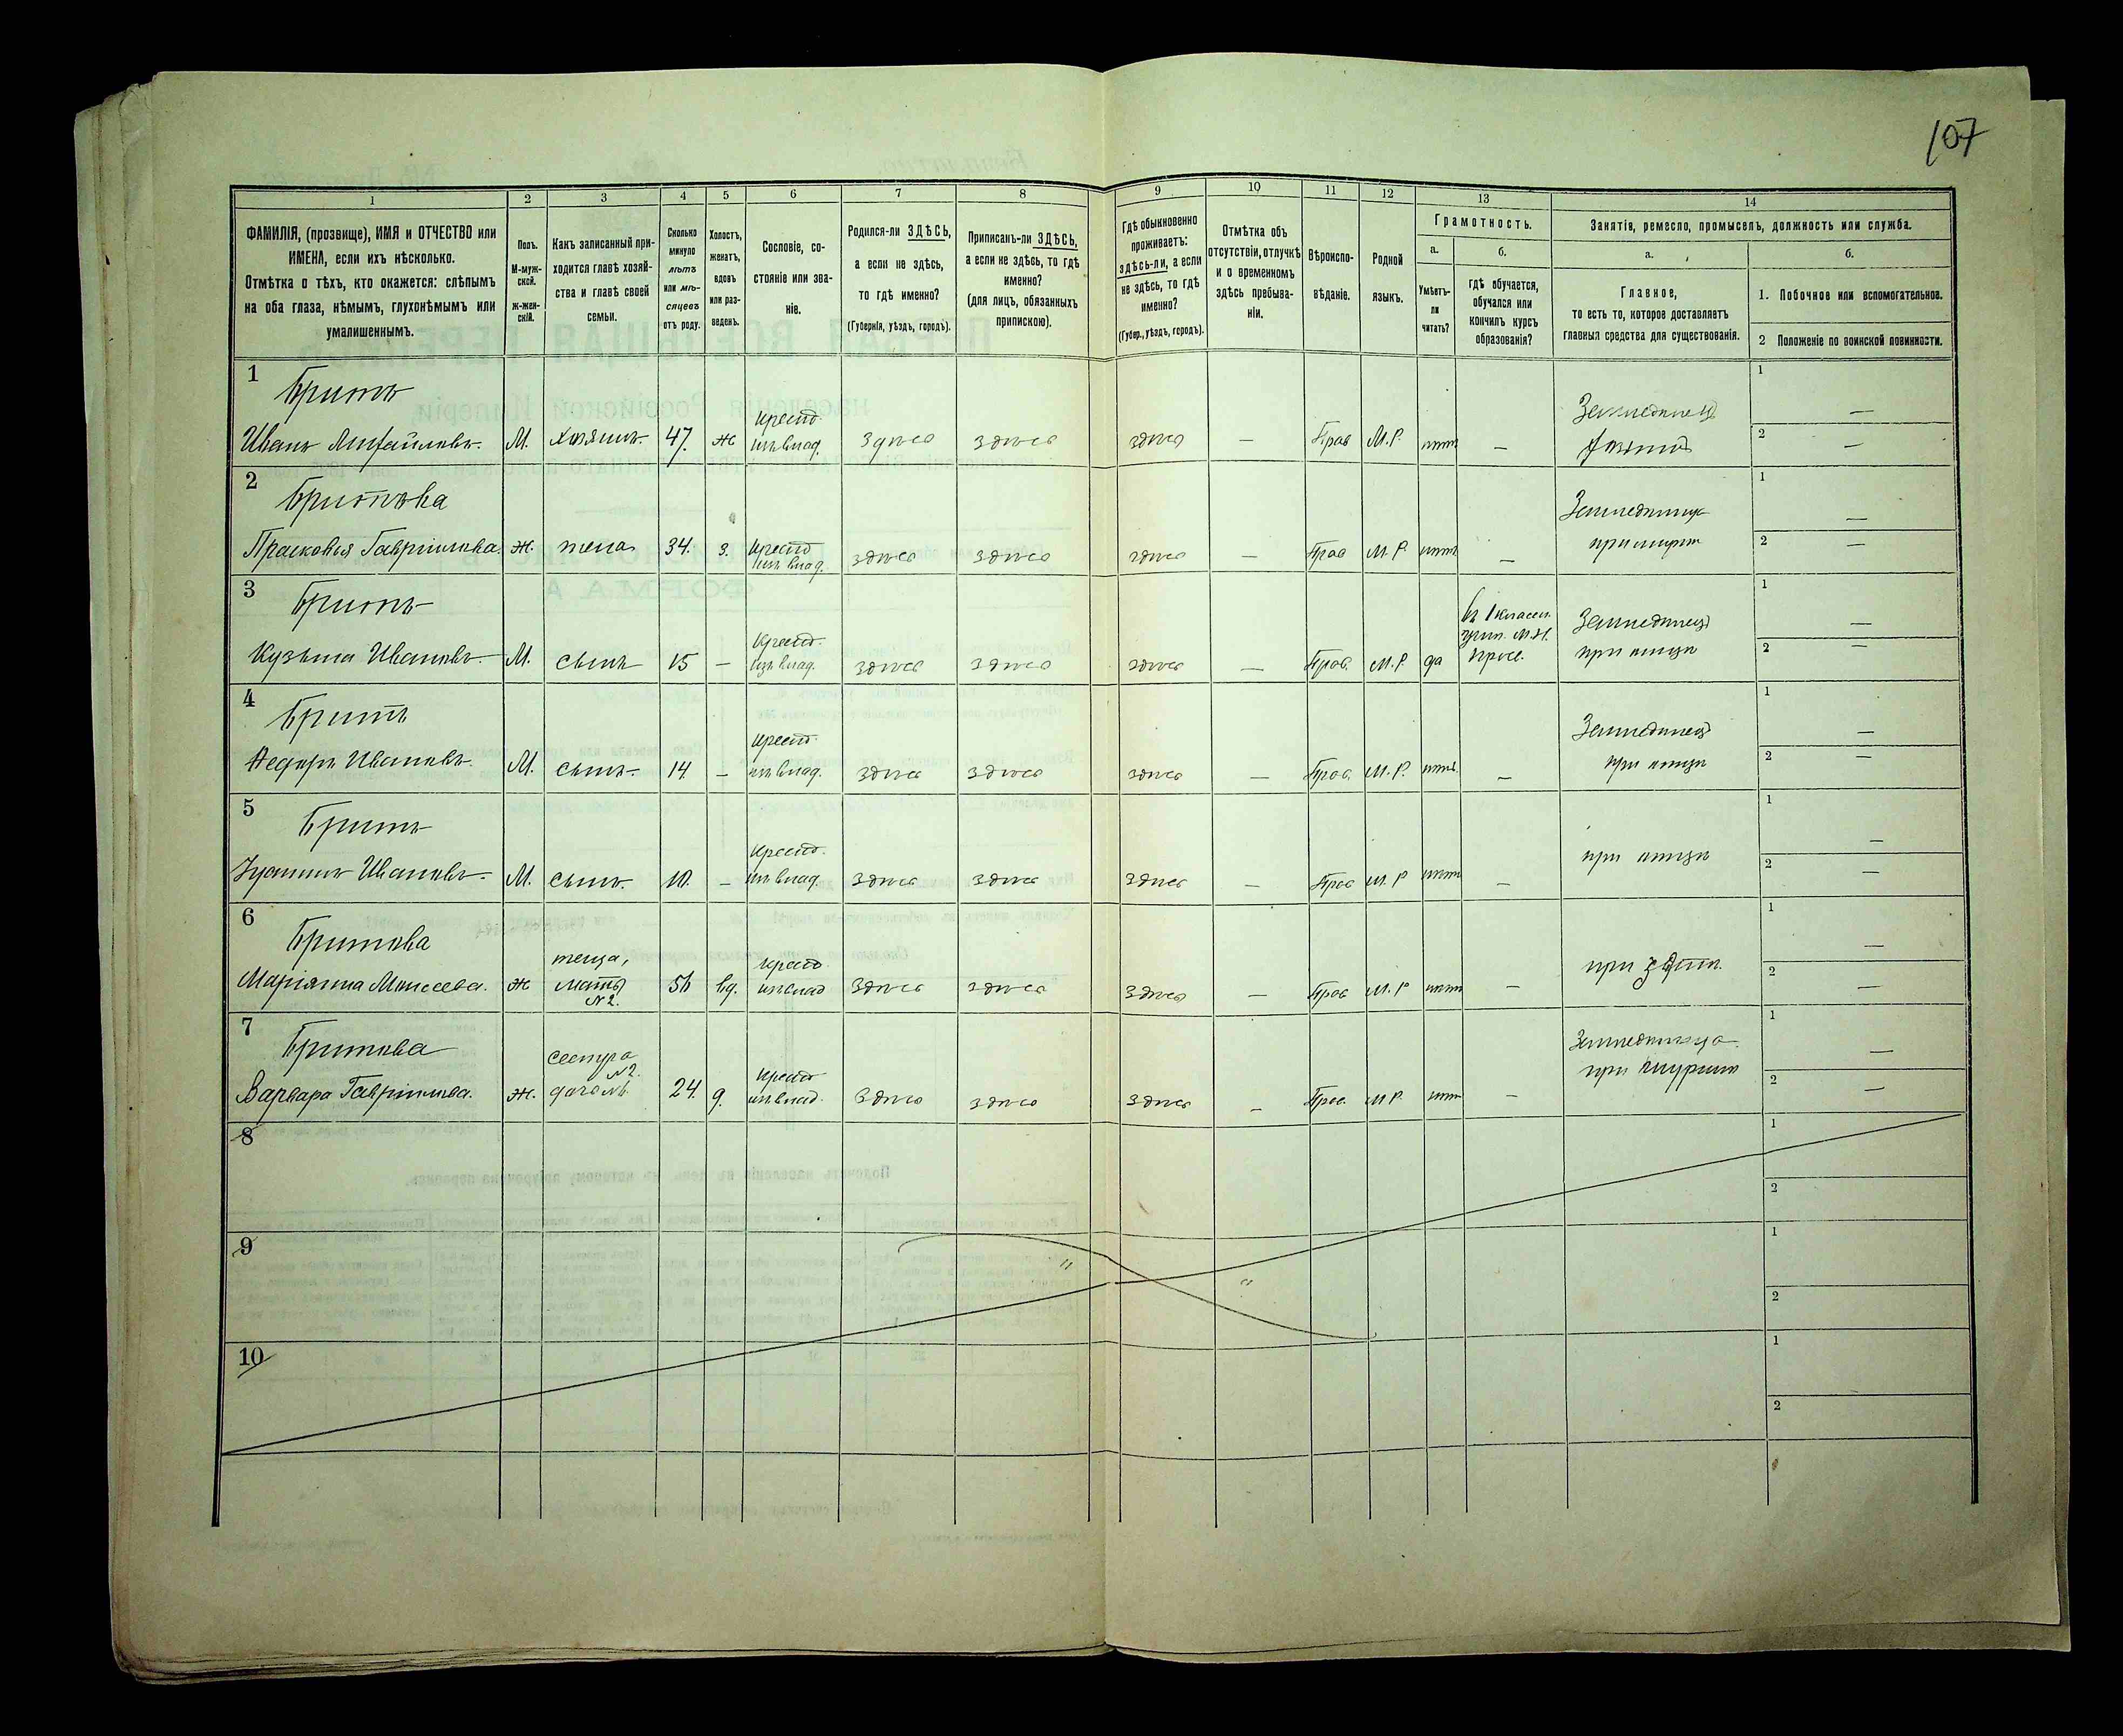 107
1 2 3 4 5 6 7 8 9 10 11 12 13 14
ФАМИЛІЯ, (прозвище), ИМЯ и ОТЧЕСТВО или
ИМЕНА, если ихъ нѣсколько.
Отмѣтка о тѣхъ, кто окажется: слѣпымъ
на оба глаза, нѣмымъ, глухонѣмымъ или
умалишеннымъ.
Полъ.
М-муж-
ской.
Ж-жен-
скій.
Какъ записанный при-
ходится главѣ хозяй-
ства и главѣ своей
семьи.
Сколько
минуло
лѣтъ
или мѣ-
сяцевъ
отъ роду.
Холостъ,
женатъ,
вдовъ
или раз-
веденъ.
Сословіе, со-
стояніе или зва-
ніе.
Родился-ли ЗДѢСЬ,
а если не здѣсь,
то гдѣ именно?
(Губернія, уѣздъ, городъ).
Приписанъ-ли ЗДѢСЬ,
а если не здѣсь, то гдѣ
именно?
(для лицъ, обязанныхъ
припискою).
Гдѣ обыкновенно
проживаетъ:
здѣсь-ли, а если
не здѣсь, то гдѣ
именно?
(Губер., уѣздъ, городъ).
Отмѣтка объ
отсутствіи, отлучкѣ
и о временномъ
здѣсь пребыва-
ніи.
Вѣроиспо-
вѣданіе.
Родной
языкъ.
Грамотность.
а.
Умѣетъ-
ли
читать?
б.
гдѣ обучается,
обучался или
кончилъ курсъ
образованія?
Занятія, ремесло, промыселъ, должность или служба.
а.
Главное,
то есть то, которое доставляетъ
главныя средства для существованія.
б.
1. Побочное или вспомогательное.
2 Положеніе по воинской повинности.
1
Бритъ
Иванъ Михайловъ. М. хозяинъ 47. ж Крест. изъ влад. здѣсь здѣсь здѣсь — Прав М.Р. нѣтъ — Земледѣлецъ хозяинъ
1 —
2 —
2
Бритова
Прасковья Гавріилова. ж. жена 34. з. Крест изъ влад. здѣсь здѣсь здѣсь — Прав М.Р. нѣтъ — Земледѣлица при мужѣ
1 —
2 —
3
Бритъ
Кузьма Ивановъ. М. сынъ 15 — Крест. изъ влад. здѣсь здѣсь здѣсь — Прав. М.Р. да Въ 1 классн. учил. М.Н. Просв. Земледѣлецъ при отцѣ
1 —
2 —
4
Бритъ
Федоръ Ивановъ. М. сынъ 14 — Крест. изъ влад. здѣсь здѣсь здѣсь — Прав. М.Р. нѣтъ — Земледѣлецъ при отцѣ
1 —
2 —
5
Бритъ
Ивановъ. М. сынъ. 10. — Крест. изъ влад. здѣсь здѣсь здѣсь — Прав М.Р нѣтъ — при отцѣ
1 —
2 —
6
Бритова
Маріянна Моисеева. ж теща, мать №2. 56 вд. Крест. изъ влад здѣсь здѣсь здѣсь — Прав М.Р нѣтъ — при зятѣ.
1 —
2 —
7
Бритова
Варвара Гавріилова. ж. сестра №2. 24. д. Крест изъ влад. здѣсь здѣсь здѣсь — Прав. М.Р. нѣтъ — Земледѣлица при
1 —
2 —
8
1
2
9
1
2
10
1
2